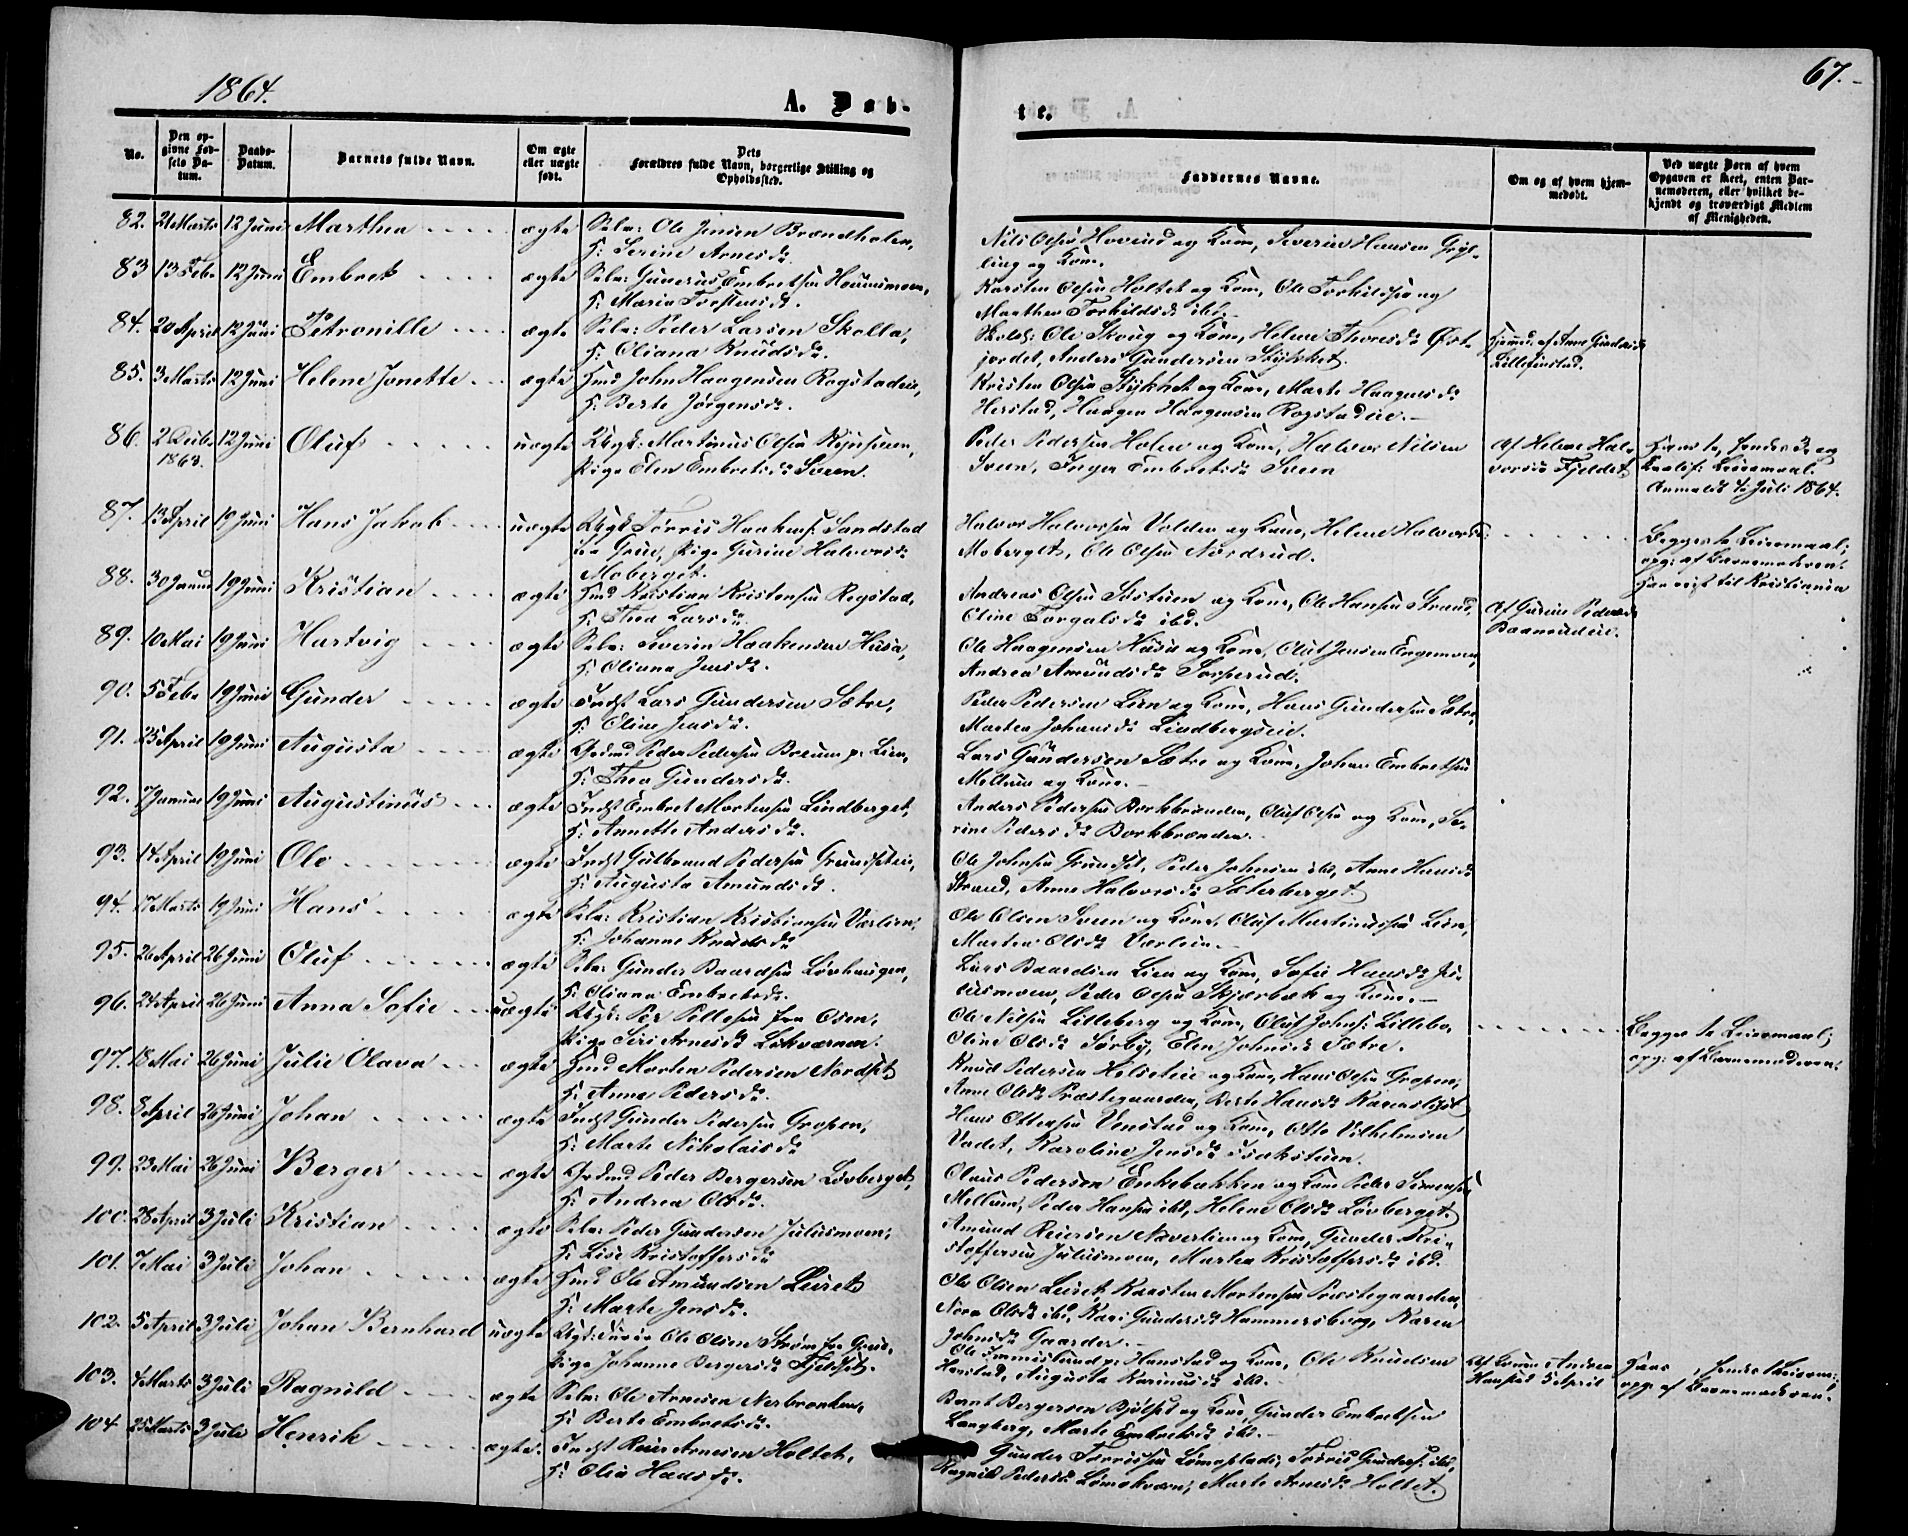 1864.
67.
A. Døb-
te.
No.
Den op-
givne Fød-
sels Da-
tum.
Daabs-
Datum.
Barnets fulde Navn.
Om ægte
eller uægte
født.
Dets
Forældres fulde Navn, borgerlige Stilling og
Opholdssted.
Faddernes Navne.
Om og af hvem hjem-
medøbt.
Ved uægte Børn af hvem
Opgaven er skeet, enten Bar-
nemoderen, eller hvilket be-
kjendt og troværdigt Medlem
af Menigheden.
82. 21 Marts 12 Juni Marthea ægte Selv: Ole Jensen Brændholen,
K: Serine Arnesd:
Nils Olsen Hoverud og Kone, Severin Hansen Gryt-
ling og Kone.
83 13 Feb: 12 Juni Embret ægte Selv: Gunerius Embretsen
K: Maria Torstensd:
Karsten Olsen Holtet og Kone, Ole Torkildsen og
Marthea Torkildsd: ibd:
84. 20 April 12 Juni Petronille ægte Selv: Peder Larsen Skolla,
K: Oliana Knudsd:
Ole Skoug og Kone, Helene Thoresd: Øst-
jordet, Anders Gundersen Stykket.
Hjemd. af Anne Gundersd:
85. 3 Marts 12 Juni Helene Jonette ægte Hmd John Haagensen Rogstadeie,
K: Berte Jørgensd:
Kristen Olsen Stykket og Kone, Marte Haagensd:
Herstad, Haagen Haagensen Rogstadeie.
86. 2 Decbr 12 Juni Oluf uægte Ukgl: Martinus Olsen
1863.
Pige Elen Embretsd: Sveen.
Peder Pedersen Holen og Kone, Halvor Nilsen
Sveen, Inger Embretsd: Sveen
Af Helene Hal-
vorsen Fjeldet
Hans 1te, hendes 3die
Leiermaal.
Anmeldt 4 Juli 1864.
87. 13 April 19 Juni Hans Jakob uægte Ukgl: Torris Haakens: Sandstad
fra Grue, Pige Gurine Halvorsd:
Moberget.
Halvor Halvorsen Volden og Kone, Helene Halvorsd:
Moberget, Ole Olsen Nordrud.
Begges 1te Leiermaal;
opg: af Barnemoderen.
Har reist til Kristiania
88. 30 Januar 19 Juni Kristian ægte Hmd Kristian Kristensen Rogstad,
K: Thea Larsd:
Andreas Olsen og Kone, Ole Hansen Strand,
Oline Torgalsd: ibd.
Af Gurine Pedersd:
89. 10 Mai 19 Juni Hartvig ægte Selv: Severin Haakensen Husa,
K: Oliana Jensd:
Ole Haagensen Husa og Kone, Oluf Jensen Engemoen,
Andrea Amundsd: Torperud.
90. 5 Feb: 19 Juni Gunder ægte Indst Lars Gundersen Sætre,
K: Eline Jensd:
Peder Pedersen Lien og Kone, Hans Gundersen Sætre,
Marthea Johansd: Lindbergseie.
91. 25 April 19 Juni Augusta ægte Peder Pedersen Braum p: Lien,
K: Thea Gundersd:
Lars Gundersen Sætre og Kone, Johan Embretsen
Mellum og Kone.
92. 7 Januar 19 Juni Augustinus ægte Indst Embret Mortensen Lindberget,
K: Annette Andersd:
Anders Pedersen Borkbrænden, Oluf Olsen og Kone, Se-
rine Pedersd: Borkbrænden.
93. 14 April 19 Juni Ole ægte Indst Gulbrand Pedersen Grundseteie,
K: Augusta Amundsd:
Ole Johnsen Grundset, Peder Johnsen ibd, Anne Hansd:
Strand, Anne Halvorsd: Sæterberget.
94. 17 Marts 19 Juni Hans ægte Selv: Kristian Kristiansen Værlien,
K: Johanne Knudsd:
Ole Olsen Sveen og Kone, Oluf Martinussen Lien,
Marthea Olsd: Værlien.
95. 26 April 26 Juni Oluf ægte Selv: Gunder Baardsen Løvhaugen,
K: Oliana Embretsd:
Lars Baardsen Lien og Kone, Sofie Hansd: Ju-
lusmoen, Peder Olsen Skjærbæk og Kone.
96. 24 April 26 Juni Anna Sofie uægte Ukgl: Per Pellesen fra Osen,
Pige Siri Arnesd: Løkværnen.
Ole Nilsen Lilleberg og Kone, Oluf Johns: Lillebo,
Oline Olsd: Sørby, Elen Johnsd: Sætre.
Begges 1te Leiermaal;
opg: af Barnemoderen.
97. 18 Mai 26 Juni Julie Olava ægte Hmd Morten Pedersen Nordset
K: Anne Pedersd:
Knud Pedersen Helseteie og Kone, Hans Olsen Gropen,
Anne Olsd: Præstegaarden, Berte Hansd:
98. 8 April 26 Juni Johan ægte Indst Gunder Pedersen Gropen,
K: Marte Nikolaisd:
Hans Ottersen Vonstad og Kone, Otto Vilhelmsen
Vadet, Karoline Jensd: Isakstuen.
99. 23 Mai 26 Juni Berger ægte Peder Bergersen Løvberget,
K: Andrea Olsd:
Olaus Pedersen Enkebakken og Kone, Peder Simensen
Mellum, Peder Hansen ibd, Helene Olsd: Løvberget.
100. 28 April 3 Juli Kristian ægte Selv: Peder Gundersen Julusmoen,
K: Lise Kristoffersd:
Amund Reiersen Næverlien og Kone, Gunder Kri-
stoffersen Julusmoen, Marthea Kristoffersd: ibd.
101. 7 Mai 3 Juli Johan ægte Hmd Ole Amundsen Leiret
K: Marte Jensd:
Ole Olsen Leiret, Karsten Mortensen Præstegaarden,
Nora Olsd: ibd, Kari Gundersd: Hammersborg, Karen
Johnsd: Gaarder.
102. 5 April 3 Juli Johan Bernhard uægte Ole Olsen Strøm fra Grue,
Pige Johanne Bergersd: Fjeldset.
Ole p: Hanstad og Kone, Ole Knudsen
Hanstad, Augusta Karinusd: ibd.
Af Konen Andrea
Hanstad 5 April
Hans , hendes 1 Leierm:
opg: af Barnemoderen.
103. 4 Marts 3 Juli Ragnild ægte Selv: Ole Arnesen Nerbrænden,
K: Berte Embretsd:
Bernt Bergersen Bjølset og Kone, Gunder Embretsen
Langberg, Marte Embretsd: ibd.
104 25 Marts 3 Juli Henrik ægte Indst Reier Arnesen Holtet,
K: Olia Hansd:
Gunder Torrissen Lømostad, Torris Gunders: ibd,
Ragnild Pedersd: Lømokværn, Marte Arnesd: Holtet.